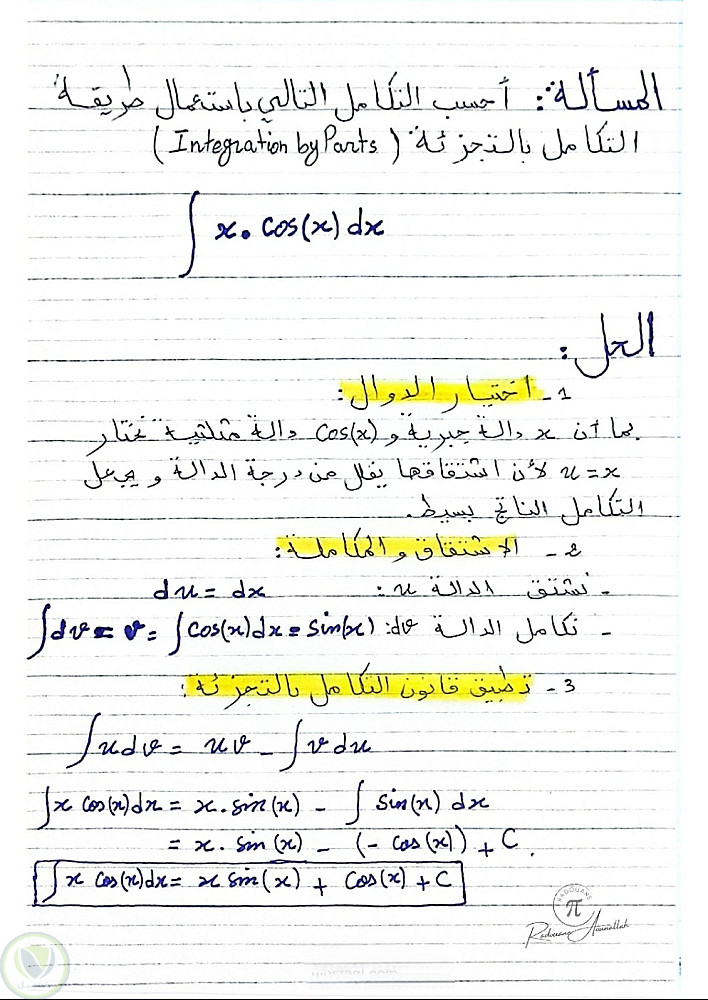 المسألة: أحسب التكامل التالي باستعمال طريقة
التكامل بالتجزئة (Integration by Parts)
∫ x . cos(x) dx
الحل:
1- اختيار الدوال:
بما أن x دالة جبرية و cos(x) دالة مثلثية نختار
u=x لأن اشتقاقها يقلل من درجة الدالة و يجعل
التكامل الناتج بسيط.
2- الاشتقاق والمكاملة:
- نشتق الدالة u: du = dx
- نكامل الدالة dv: ∫dv = v = ∫cos(x)dx = sin(x)
3- تطبيق قانون التكامل بالتجزئة:
∫udv = uv - ∫vdu
∫x cos(x)dx = x.sin(x) - ∫ sin(x) dx
= x. sin(x) - (- cos(x)) + C.
∫x cos(x)dx = x sin(x) + cos(x) + C
RADOUANE
π
Radouane Aounallah